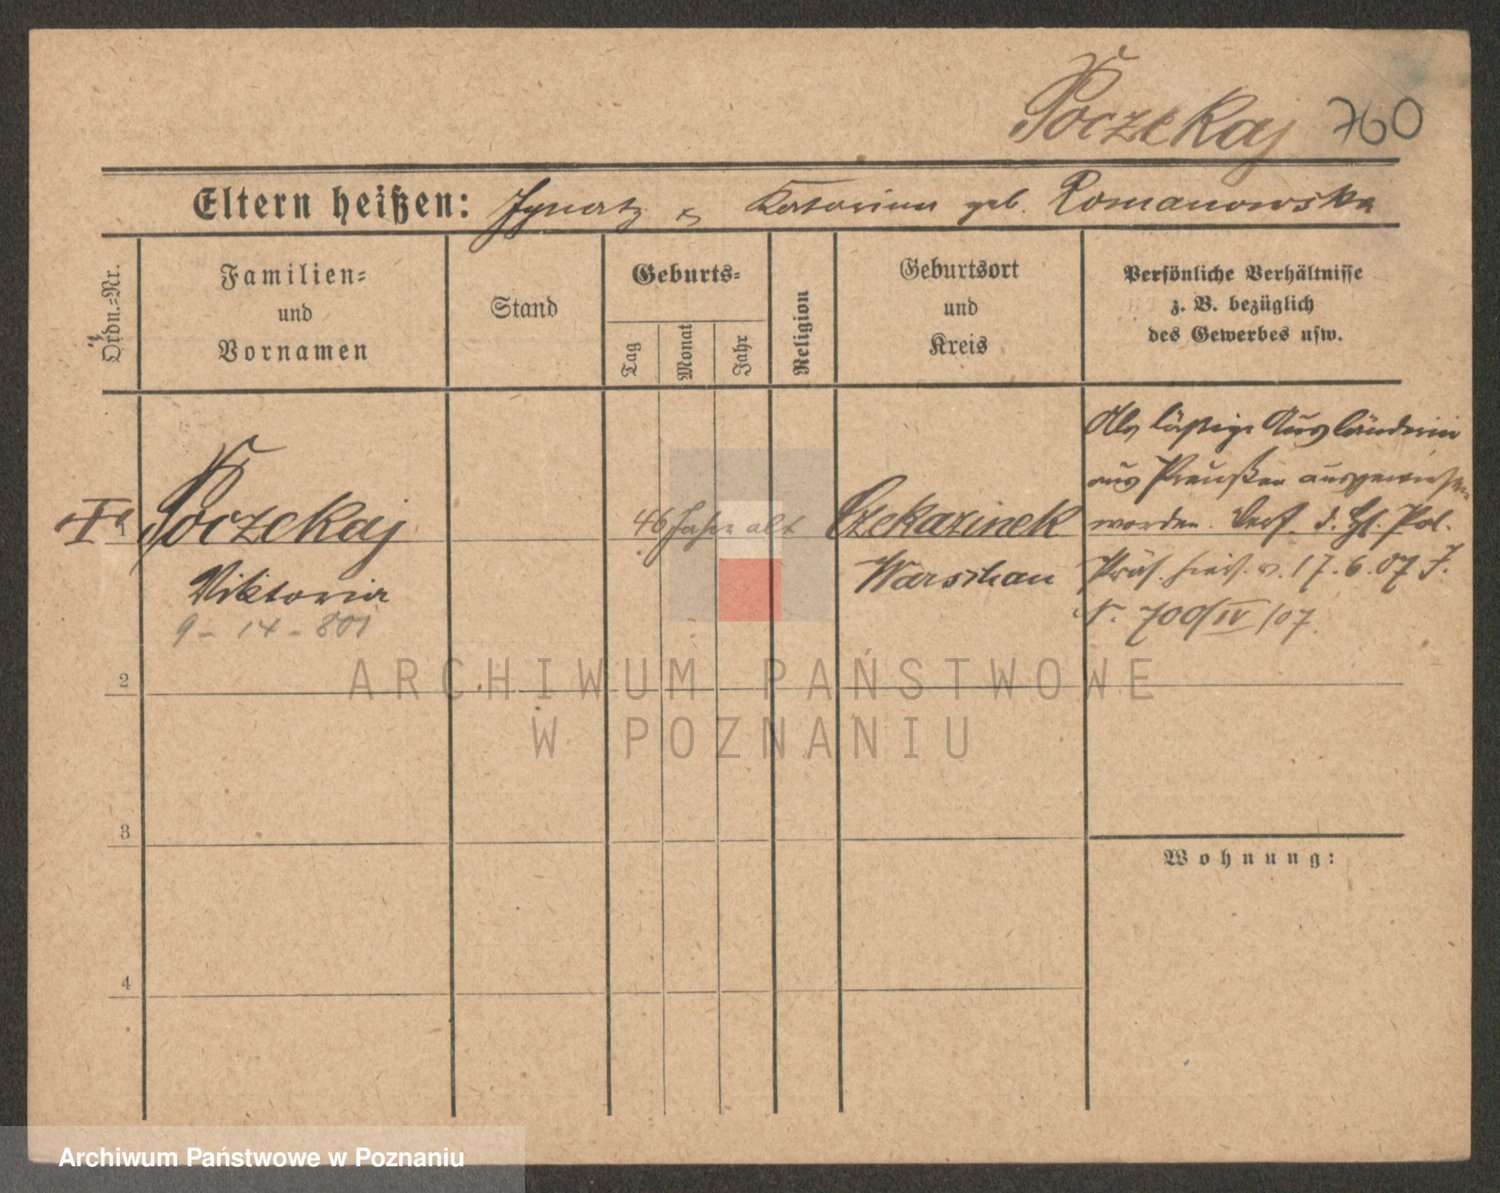 Poczekaj 760
Eltern heißen: Ignatz & Katarina geb. Romanowska
Ordn.-Nr.
Familien-
und
Vornamen
Stand
Geburts-
Tag
Monat
Jahr
Religion
Geburtsort
und
Kreis
Persönliche Verhältnisse
z. B. bezüglich
des Gewerbes usw.
1
Poczekaj
Viktoria
9 - 14 - 801
46 Jahre alt
Warschau
Als lästige Ausländerin
aus Preußen ausgewiesen
worden. Verf. d. Pol.
Präs. v. 17.6.07 J.
N. 700/IV/07.
2
3
4
Wohnung:
ARCHIWUM PAŃSTWOWE
W POZNANIU
Archiwum Państwowe w Poznaniu